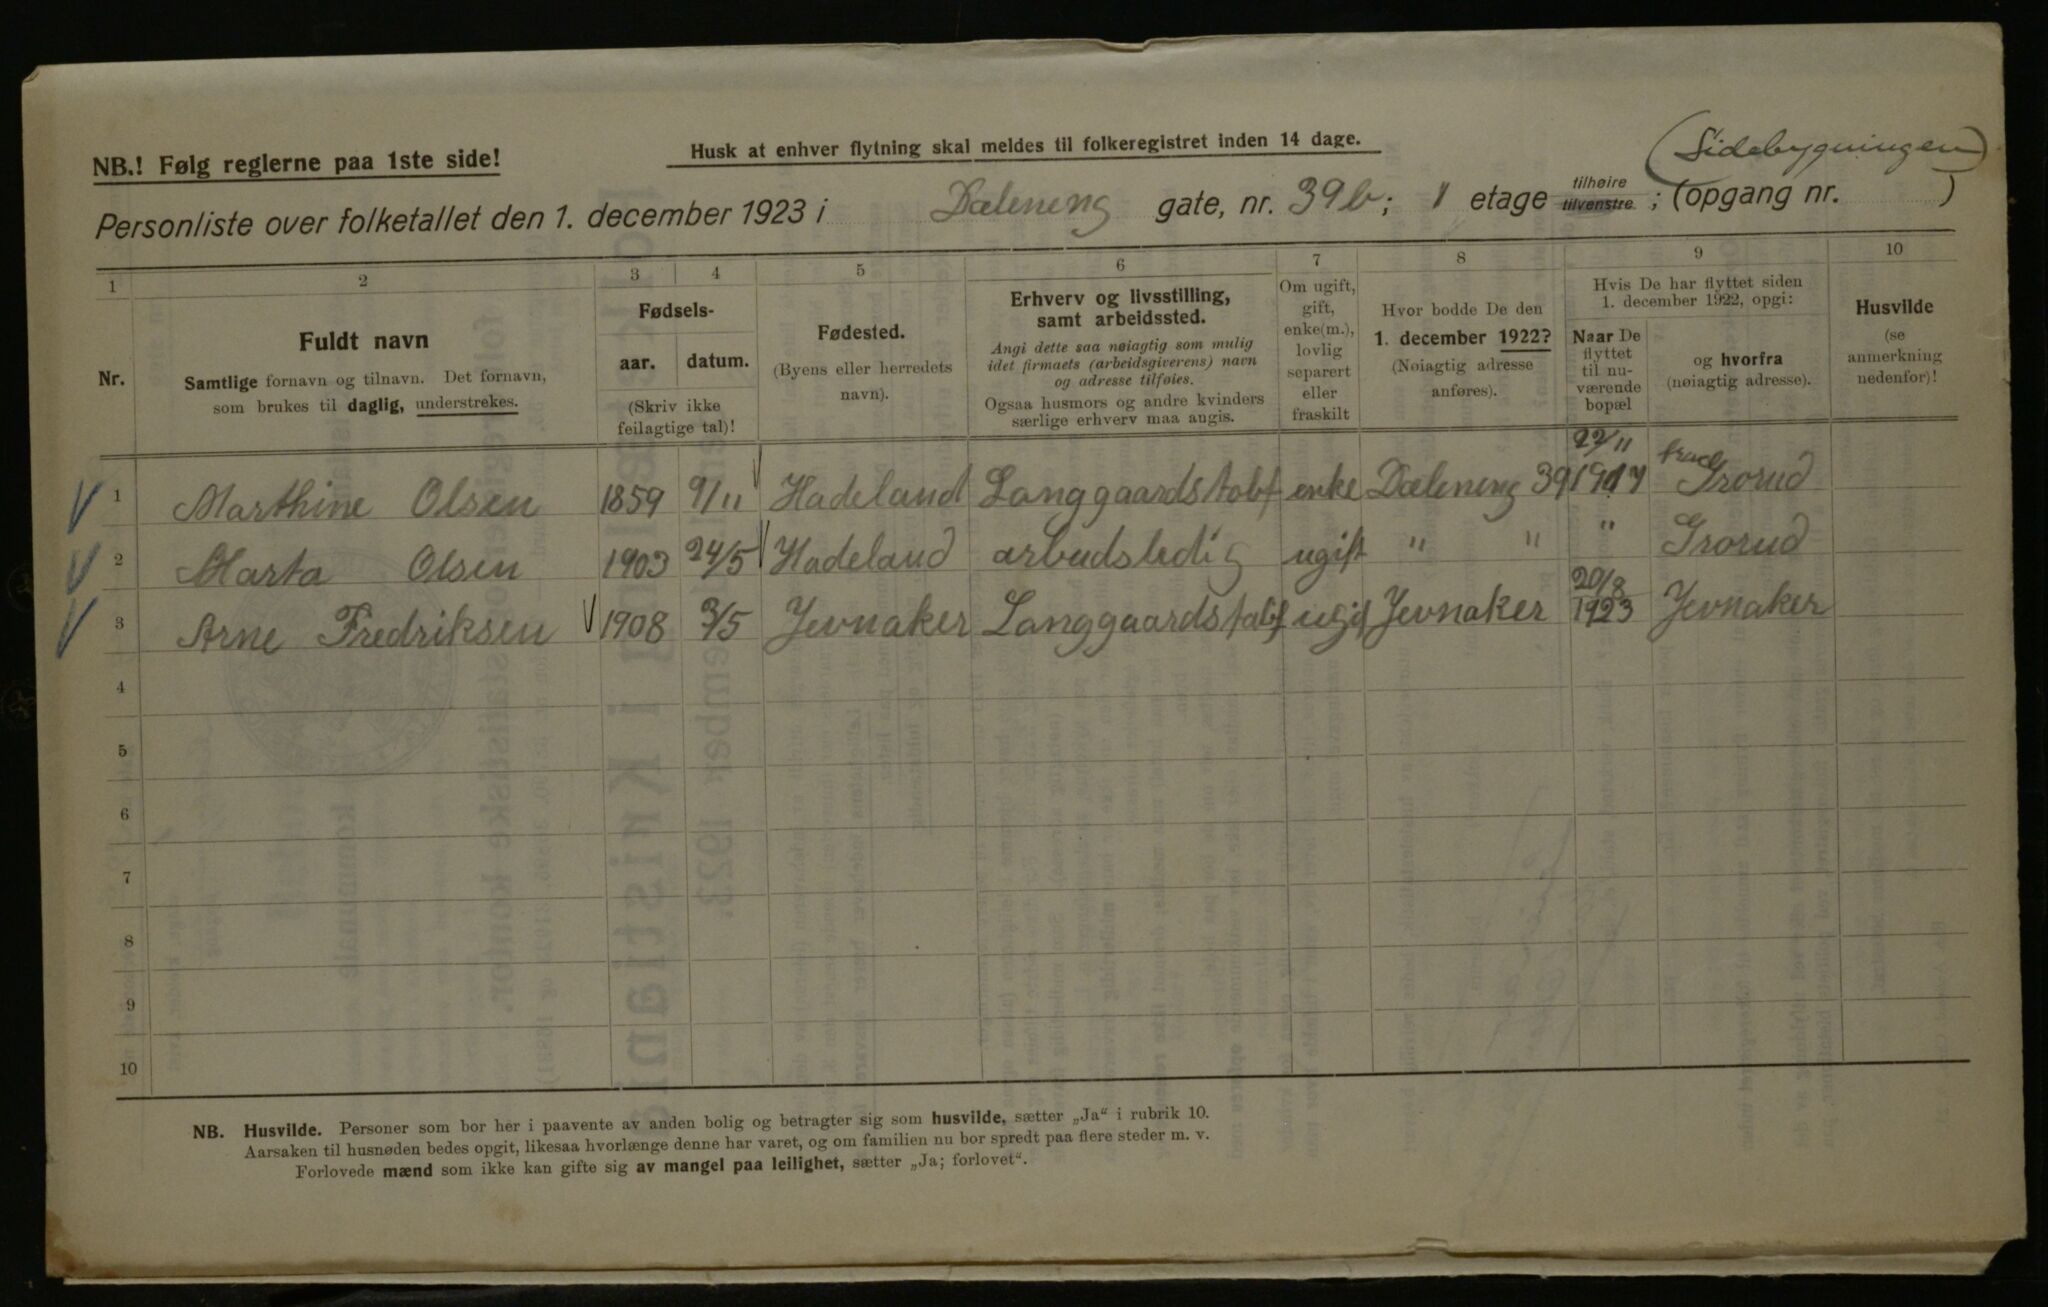 NB.! Følg reglerne paa 1ste side!
Husk at enhver flytning skal meldes til folkeregistret inden 14 dage.
(Sidebygningen)
Personliste over folketallet den 1. december 1923 i Dælening gate, nr. 39b; 1 etage tilhøire tilvenstre ; (opgang nr. )
1 2 3 4 5 6 7 8 9 10
Nr.
Fuldt navn
Samtlige fornavn og tilnavn. Det fornavn,
som brukes til daglig, understrekes.
Fødsels-
aar. datum.
(Skriv ikke
feilagtige tal)!
Fødested.
(Byens eller herredets
navn).
Erhverv og livsstilling,
samt arbeidssted.
Angi dette saa nøiagtig som mulig
idet firmaets (arbeidsgiverens) navn
og adresse tilføies.
Ogsaa husmors og andre kvinders
særlige erhverv maa angis.
Om ugift,
gift,
enke(m.),
lovlig
separert
eller
fraskilt
Hvor bodde De den
1. december 1922?
(Nøiagtig adresse
anføres).
Hvis De har flyttet siden
1. december 1922, opgi:
Naar De
flyttet
til nu-
værende
bopæl
og hvorfra
(nøiagtig adresse).
Husvilde
(se
anmerkning
nedenfor)!
1 Marthine Olsen 1859 9/11 Hadeland Langgaards tobf enke Dælening 39 22/11 1917 fra Grorud
2 Marta Olsen 1903 24/5 Hadeland arbudsledig ugift " " " Grorud
3 Arne Fredriksen 1908 3/5 Jevnaker Langgaards tobf ugif Jevnaker 20/8 1923 Jevnaker
4
5
6
7
8
9
10
NB. Husvilde. Personer som bor her i paavente av anden bolig og betragter sig som husvilde, sætter „Ja“ i rubrik 10.
Aarsaken til husnøden bedes opgit, likesaa hvorlænge denne har varet, og om familien nu bor spredt paa flere steder m. v.
Forlovede mænd som ikke kan gifte sig av mangel paa leilighet, sætter „Ja; forlovet“.